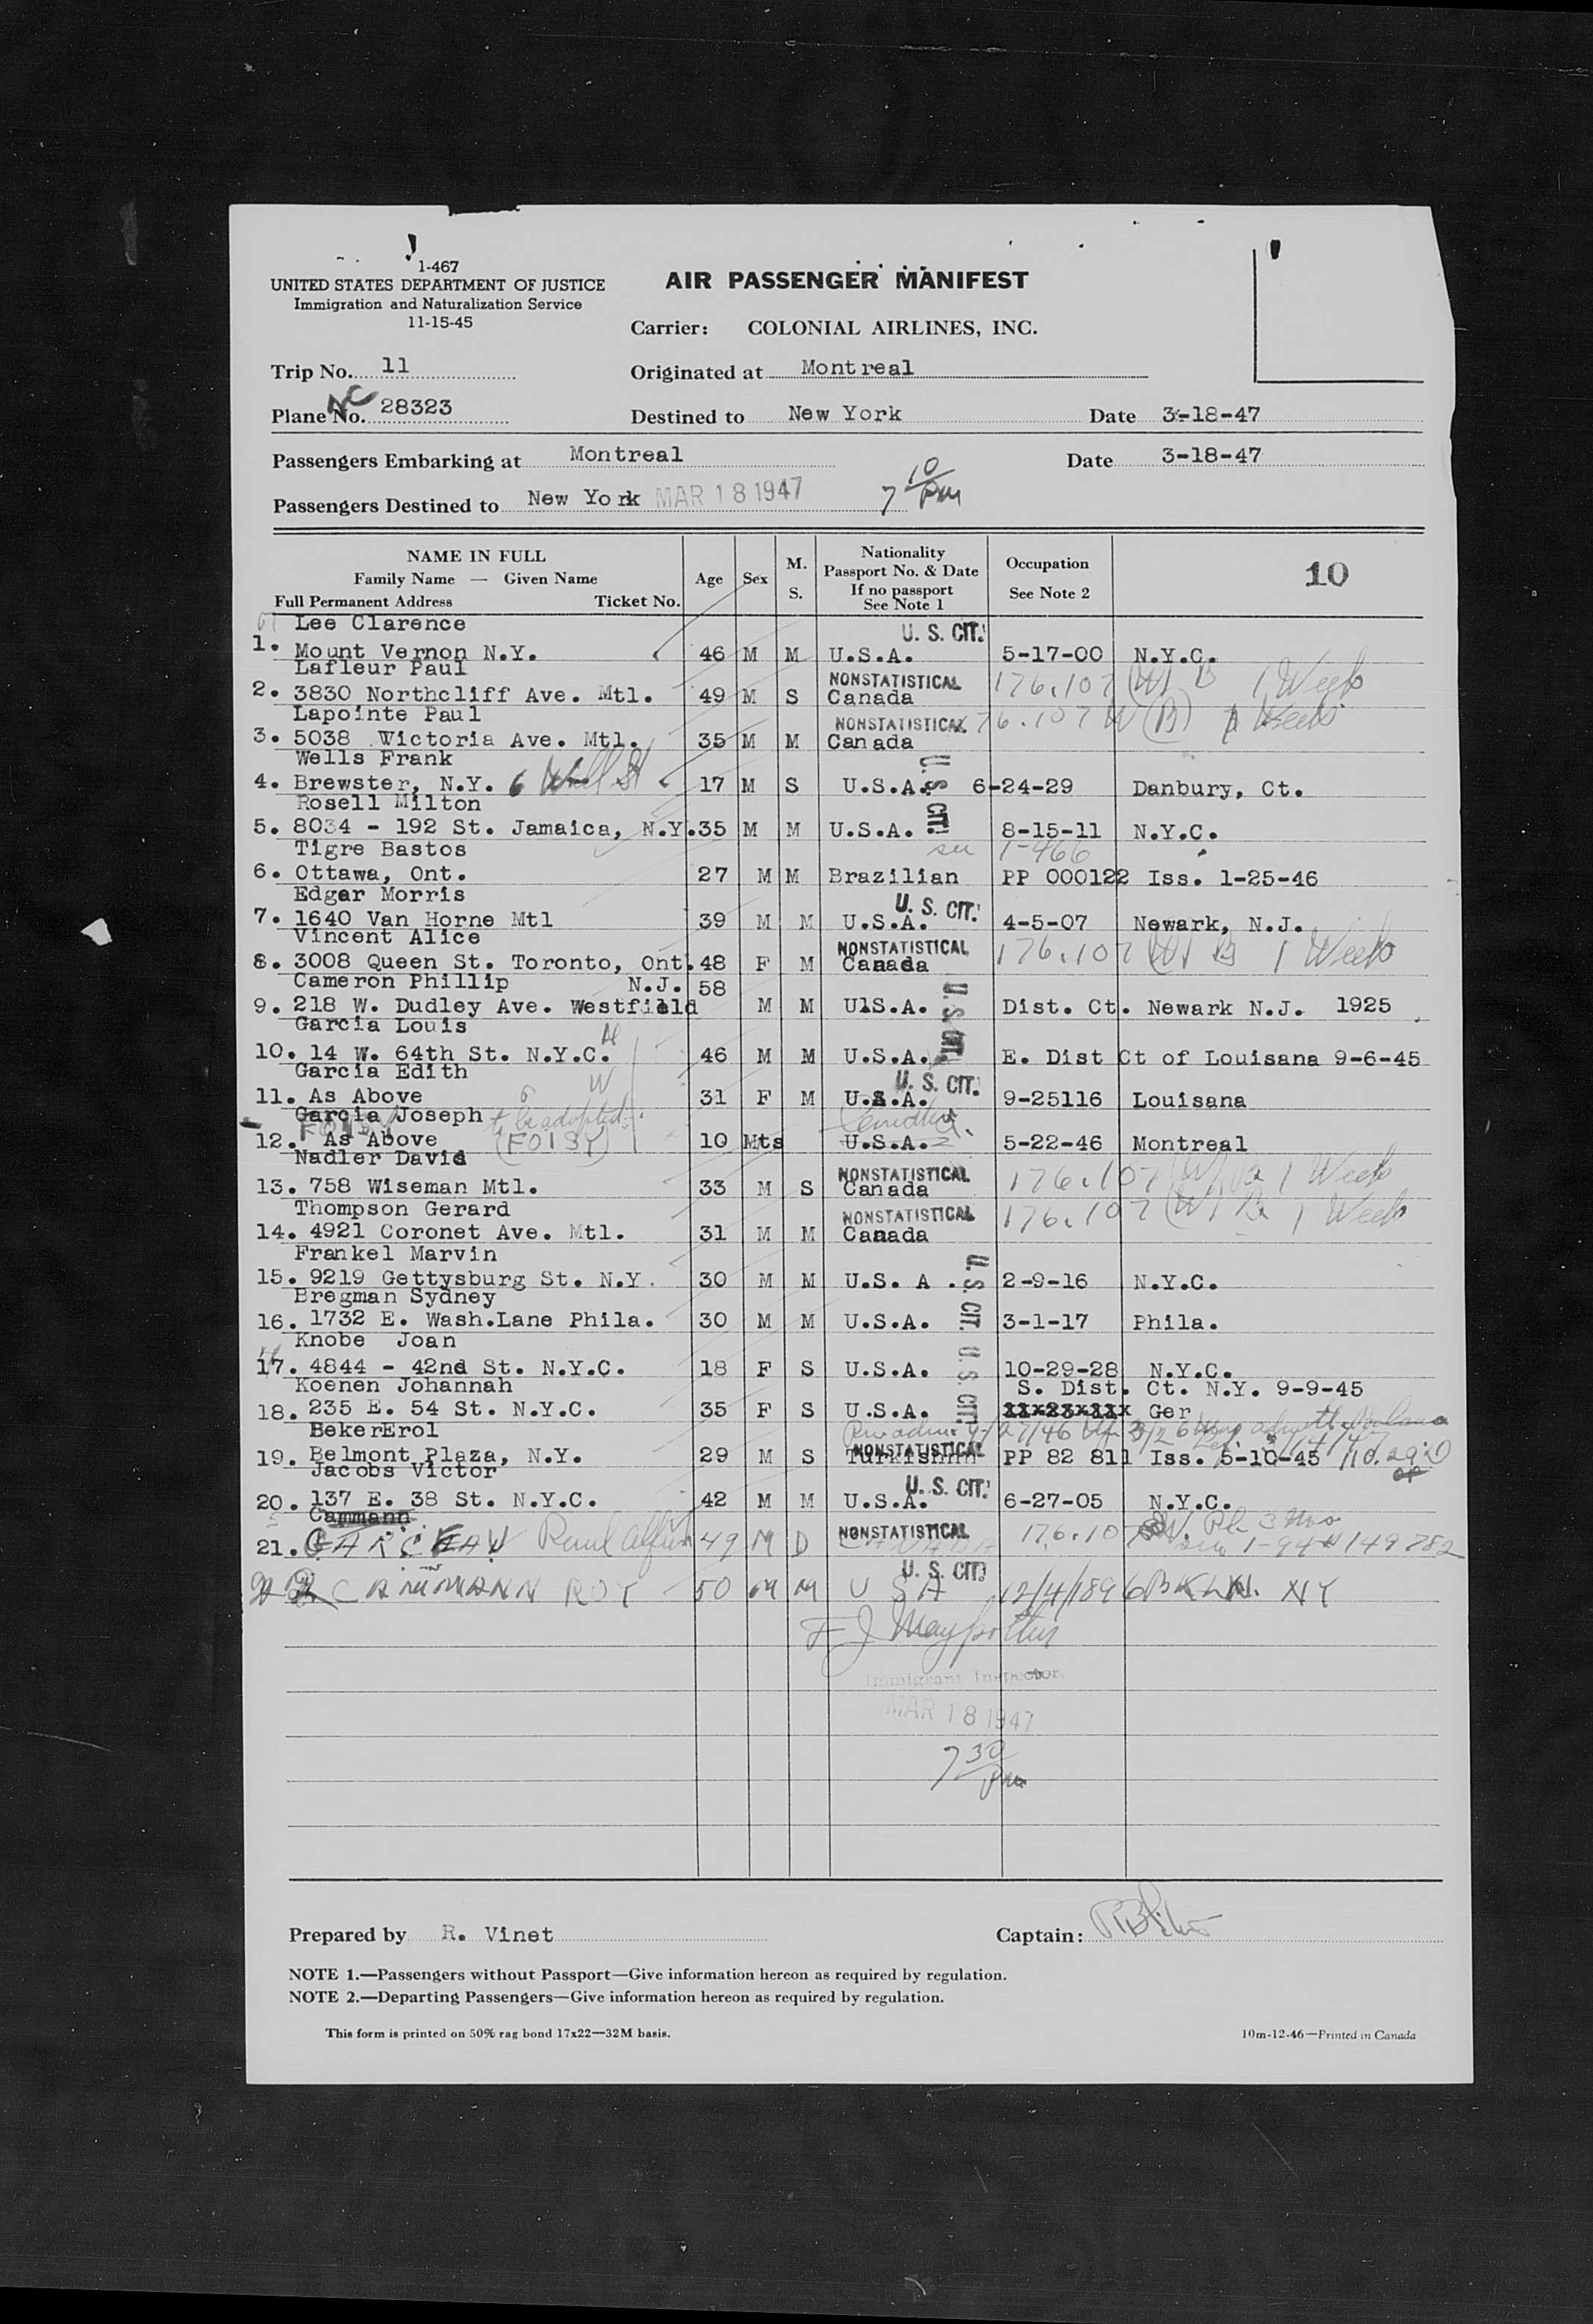 1-467
UNITED STATES DEPARTMENT OF JUSTICE
Immigration and Naturalization Service
11-15-45
AIR PASSENGER MANIFEST
Carrier: COLONIAL AIRLINES, INC.
Trip No. 11
Originated at Montreal
Plane No. NC 28323
Destined to New York Date 3-18-47
Passengers Embarking at Montreal Date 3-18-47
Passengers Destined to New York MAR 18 1947 7 10/PM
NAME IN FULL
Family Name — Given Name
Full Permanent Address Ticket No.
Age Sex M. S.
Nationality
Passport No. & Date
If no passport
See Note 1
Occupation
See Note 2
10
Lee Clarence U. S. CIT.
1. Mount Vernon N.Y. 46 M M U.S.A. 5-17-00 N.Y.C.
Lafleur Paul NONSTATISTICAL 176.107 (W) B 1 Week
2. 3830 Northcliff Ave. Mtl. 49 M S Canada
Lapointe Paul NONSTATISTICAL 176.107 W (B) Week
3. 5038 Victoria Ave. Mtl. 35 M M Canada
Wells Frank U. S. CIT.
4. Brewster, N.Y. 6 St 17 M S U.S.A. 6-24-29 Danbury, Ct.
Rosell Milton
5. 8034 - 192 St. Jamaica, N.Y. 35 M M U.S.A. 8-15-11 N.Y.C.
Tigre Bastos see 1-466
6. Ottawa, Ont. 27 M M Brazilian PP 000122 Iss. 1-25-46
Edgar Morris U. S. CIT.
7. 1640 Van Horne Mtl 39 M M U.S.A. 4-5-07 Newark, N.J.
Vincent Alice NONSTATISTICAL 176.107 (W) B 1 Week
8. 3008 Queen St. Toronto, Ont. 48 F M Canada
Cameron Phillip N.J. 58 U. S. CIT.
9. 218 W. Dudley Ave. Westfield M M UlS.A. Dist. Ct. Newark N.J. 1925
Garcia Louis H
10. 14 W. 64th St. N.Y.C. 46 M M U.S.A. E. Dist Ct of Louisana 9-6-45
Garcia Edith W U. S. CIT.
11. As Above 31 F M U.S.A. 9-25116 Louisana
Garcia Joseph to be adopted
FOISY
12. As Above (FOISY) 10 Mts U.S.A. 5-22-46 Montreal
Nadler David NONSTATISTICAL 176.107 (W) B 1 Week
13. 758 Wiseman Mtl. 33 M S Canada
Thompson Gerard NONSTATISTICAL 176.107 (W) B 1 Week
14. 4921 Coronet Ave. Mtl. 31 M M Canada
Frankel Marvin U. S. CIT.
15. 9219 Gettysburg St. N.Y. 30 M M U.S. A . 2-9-16 N.Y.C.
Bregman Sydney
16. 1732 E. Wash.Lane Phila. 30 M M U.S.A. 3-1-17 Phila.
Knobe Joan U. S. CIT.
17. 4844 - 42nd St. N.Y.C. 18 F S U.S.A. 10-29-28 N.Y.C.
Koenen Johannah S. Dist. Ct. N.Y. 9-9-45
18. 235 E. 54 St. N.Y.C. 35 F S U.S.A. Ger
BekerErol NONSTATISTICAL
19. Belmont Plaza, N.Y. 29 M S Turkish PP 82 811 Iss. 5-10-45
Jacobs Victor U. S. CIT.
20. 137 E. 38 St. N.Y.C. 42 M M U.S.A. 6-27-05 N.Y.C.
Cammann
21. Paul 49 M D NONSTATISTICAL CANADA 176.107 3 Mos
1-94 # 149782
U. S. CIT.
22 CAMMANN ROY 50 M M U S A 12/4/1896 BKLN. NY
Immigrant Inspector.
MAR 18 1947
7 30/PM
Prepared by R. Vinet Captain:
NOTE 1.—Passengers without Passport—Give information hereon as required by regulation.
NOTE 2.—Departing Passengers—Give information hereon as required by regulation.
This form is printed on 50% rag bond 17x22—32M basis. 10m-12-46—Printed in Canada